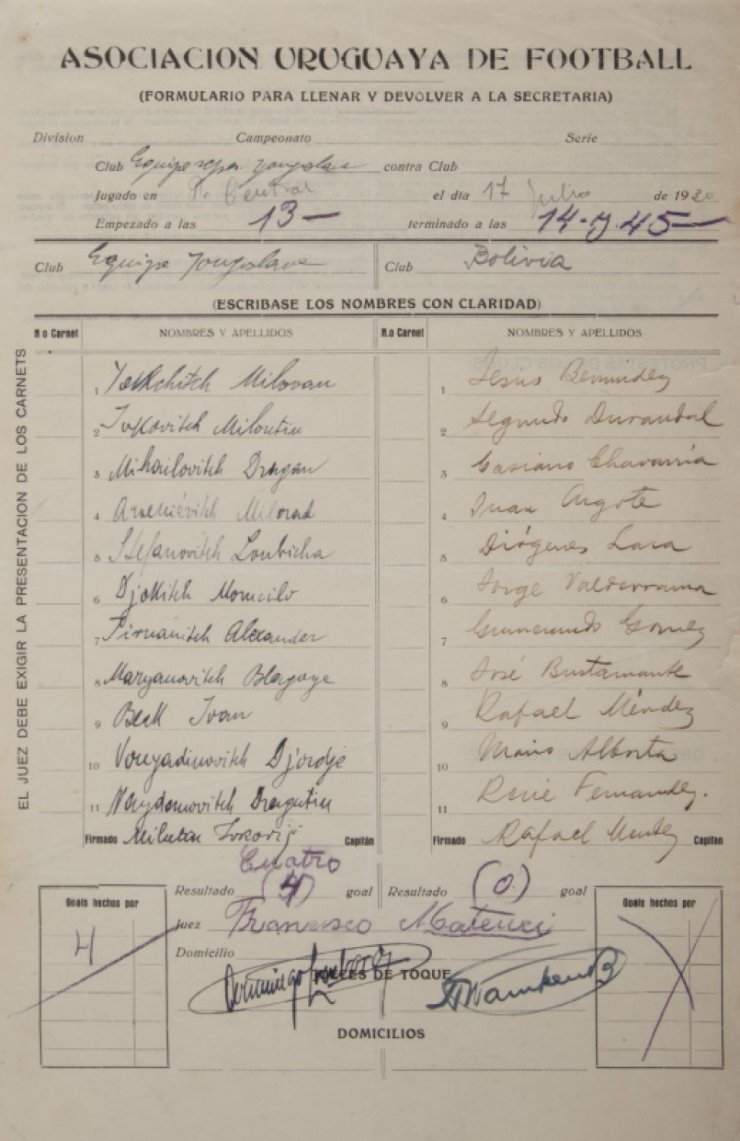 ASOCIACION URUGUAYA DE FOOTBALL
(FORMULARIO PARA LLENAR Y DEVOLVER A LA SECRETARIA)
Division Campeonato Serie
Club Equipe yougoslave contra Club
Jugado en P. Central el dia 17 Julio de 1930
Empezado a las 13— terminado a las 14 y 45—
Club Equipe yougoslave Club Bolivia
(ESCRIBASE LOS NOMBRES CON CLARIDAD)
N.o Carnet NOMBRES Y APELLIDOS N.o Carnet NOMBRES Y APELLIDOS
EL JUEZ DEBE EXIGIR LA PRESENTACION DE LOS CARNETS
1 Yakchitch Milovan 1 Jesus Bermudez
2 Ivkovitch Miloutin 2 Segundo Durandal
3 Mihailovitch Dragan 3 Casiano Chavarria
4 Arseniévitch Milorad 4 Juan Argote
5 Stefanovitch Loubicha 5 Diógenes Lara
6 Djokitch Momcilo 6 Jorge Valderrama
7 Tirnanitch Alexander 7 Gumercindo Gomez
8 Maryanovitch Blagoye 8 José Bustamante
9 Beck Ivan 9 Rafael Méndez
10 Vouyadinovitch Djordje 10 Mario Alborta
11 Naydanovitch Dragutin 11 René Fernandez.
Firmado Milutin Ivković Capitán Firmado Rafael Mendez Capitan
Cuatro
Resultado (4) goal Resultado (0) goal
Goals hechos por Goals hechos por
4
Juez Francisco Mateuci
Domicilio
JUECES DE TOQUE
DOMICILIOS